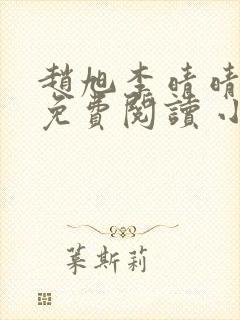 趙旭李晴晴
免費閱讀小
葉斯莉